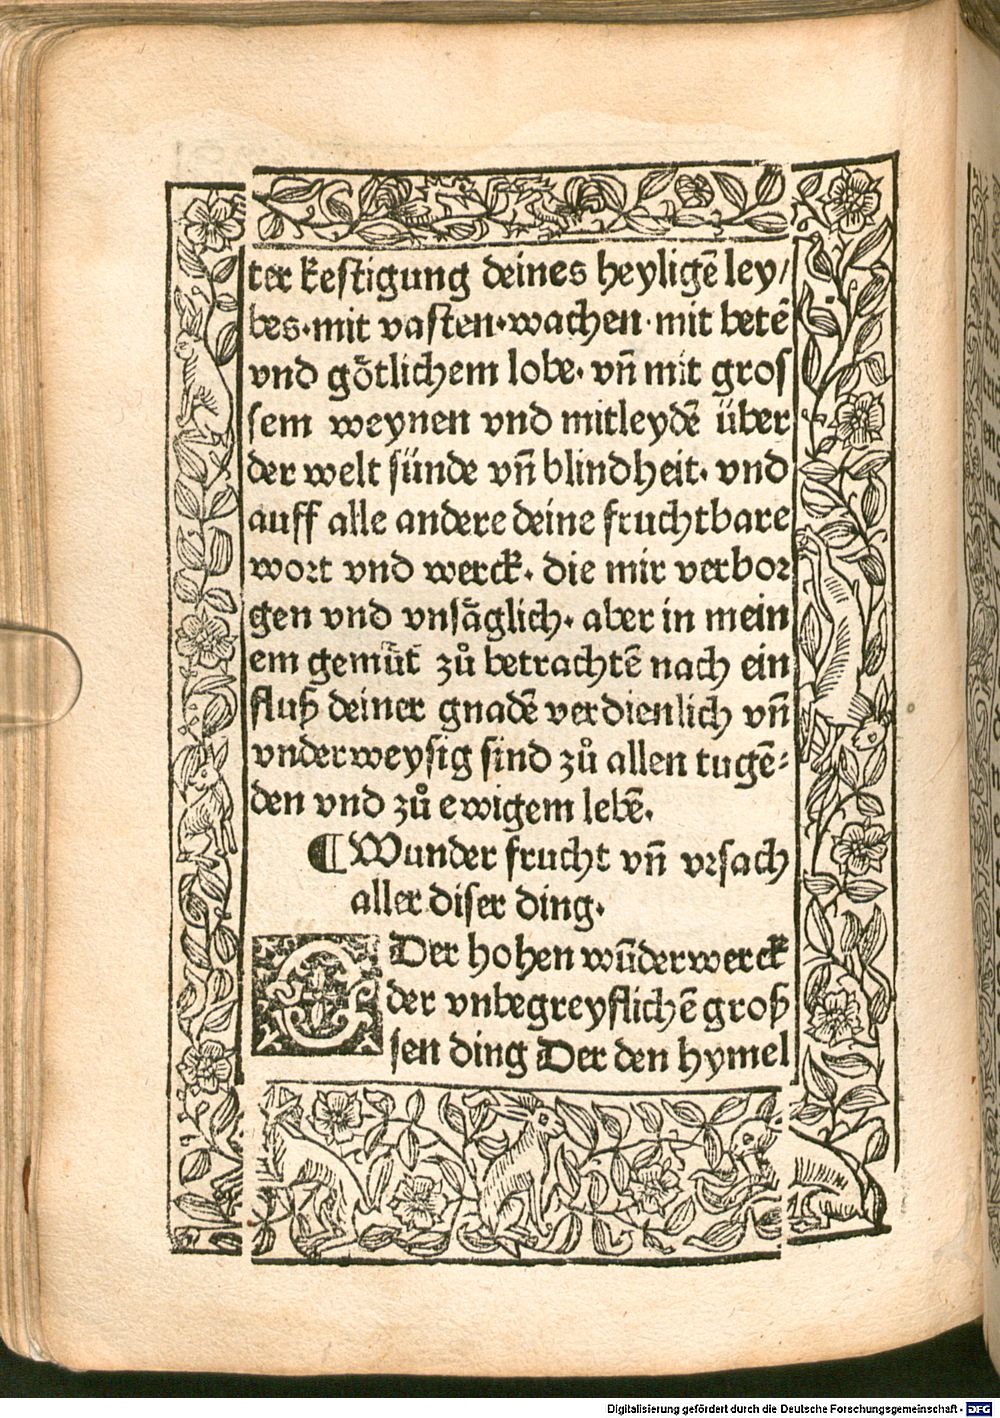 ter kestigung deines heyligē ley/
bes·mit vasten·wachen·mit betē
vnd gȫtlichem lobe· vn̄ mit gros
sem weynen vnd mitleydē über
der welt sünde vn̄ blindheit· vnd
auff alle andere deine fruchtbare
wort vnd werck· die mir verbor
gen vnd vnsäglich· aber in mein
em gemüt zů betrachtē nach ein
fluß deiner gnadē verdienlich vn̄
vnderweysig sind zů allen tugē⸗
den vnd zů ewigem lebē.
¶ Wunder frucht vn̄ vrsach
aller diser ding·
O Der hohen wūderwerck
der vnbegreyflichē groß
sen ding Der den hymel
Digitalisierung gefördert durch die Deutsche Forschungsgemeinschaft - DFG